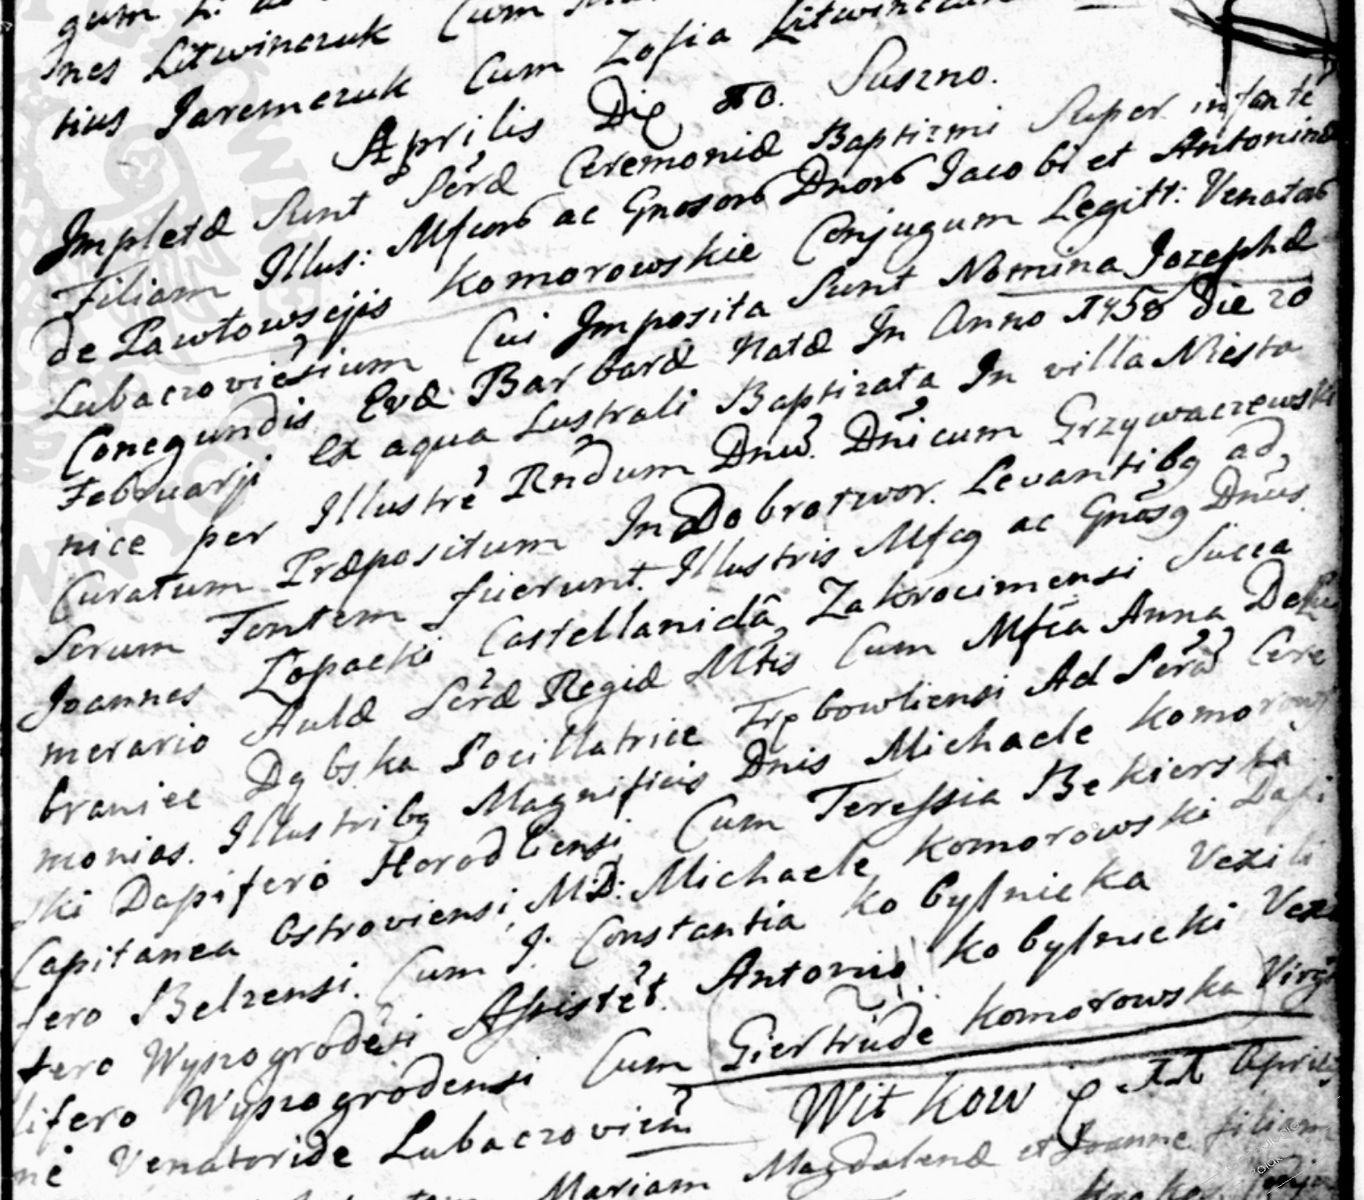 nes Litwinczuk Cum
tius Jaremczuk Cum Zofia
Aprilis Die 10. Suszno.
Impletæ Sunt Sacræ Ceremoniæ Baptizmi Super infante
Filiam Illus: Mfcorũ ac Gnosorũ Dnorũ Jacobi et Antoninæ
de Pawłowscjis Komorowskie Conjugum Legitt: Venatorũ
Lubaczoviẽsium Cui Imposita Sunt Nomina Jozephæ
Conegundis Evæ Barbaræ Natæ In Anno 1758 die 20
Februarji Ex aqua Lustrali Baptizata In villa Niesta
nice per Illustrẽ Rndum Dnũ. Dñicum Grzywaczewski
Curatum Præpositum In Dobrotwor. Levantibg ad
Serum Fontem fuerunt. Illustris Mfcg ac Gnõsg Dnũs
Joannes Łopacki Castellanidã Zakrocimensi Succa
merario Aulæ Sẽræ Regiæ Mtis Cum Mfca Anna Deku
braniec Dębska Pocillatrice Trębowliensi Ad Sẽras Cere
monias. Illustribg Magnificis Dnis Michaele Komorow
ski Dapiferó Horodliensi Cum Teressia Bekierska
Capitanea Ostroviensi, M.D: Michaele Komorowski Dapi
fero Belzensi. Cum J. Constantia Kobylnicka Vexili
fero Wyszogrodẽsi Assistẽt. Antonio Kobylnicki Vexi
lifero Wyszogrodensi Cum Giertrude Komorowska Virgi
nẽ Venatoride Lubaczoviẽn
Witkow 11 Aprilis
Mariam Magdalenæ et Joanne filiam